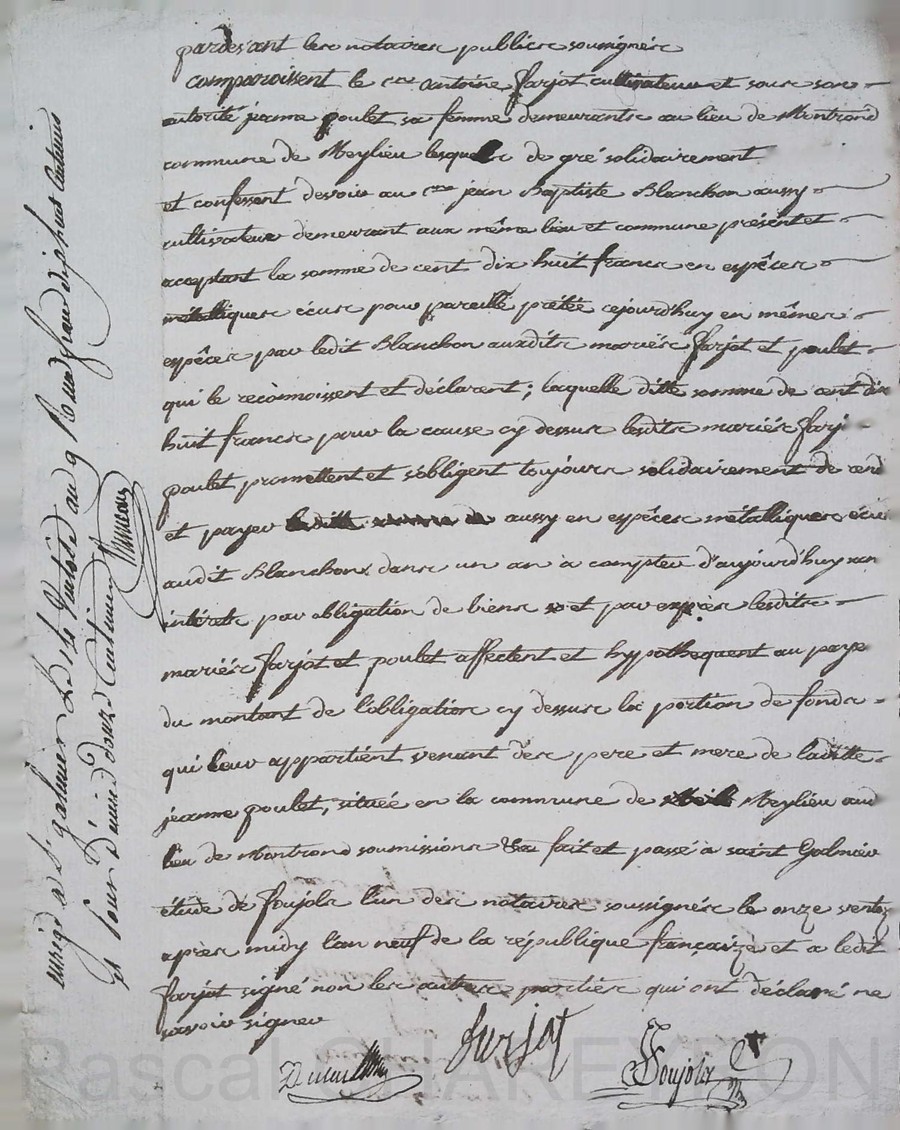 pardevant les notaires publics soussignés
comparoissent le cen antoine farjot cultivateur et sous son
autorité jeanne poulet sa femme demeurants au lieu de Montrond
commune de Meylieu lesquels de gré solidairement
et confessent devoir au cen jean Baptiste Blanchon aussy
cultivateur demeurant aux même lieu et commune présent et
acceptant la somme de cent dix huit francs en espêces
métalliques écus pour pareille prêtée cejourd'huy en mêmes
espêces par ledit Blanchon auxdits mariés farjot et poulet
qui le reconnoissent et déclarent; laquelle ditte somme de cent dix
huit francs pour la cause cy dessus lesdits mariés farj
poulet promettent et s'obligent toujours solidairement de rend
et payer aussy en espêces métalliques écus
audit Blanchon dans un an à compter d'aujourd'huy san
intérets par obligation de biens et par exprès lesdits
mariés farjot et poulet affectent et hypothequent au paye
du montant de l'obligation cy dessus la portion de fonds
qui leur appartient venant des pere et mere de laditte
jeanne poulet, située en la commune de Meylieu aud
lieu de Montrond soumissions fait et passé à saint Galmier
étude de foujols l'un des notaires soussignés le onze ventos
après midy l'an neuf de la république françaize et a ledit
farjot signé non les autres parties qui ont déclaré ne
savoir signer
farjot
foujols
enregé a St galmier le 13 Ventose an 9 Reçu francs dix huit centimes
et pour Decime douze Centimes
Pascal CHAREYRON